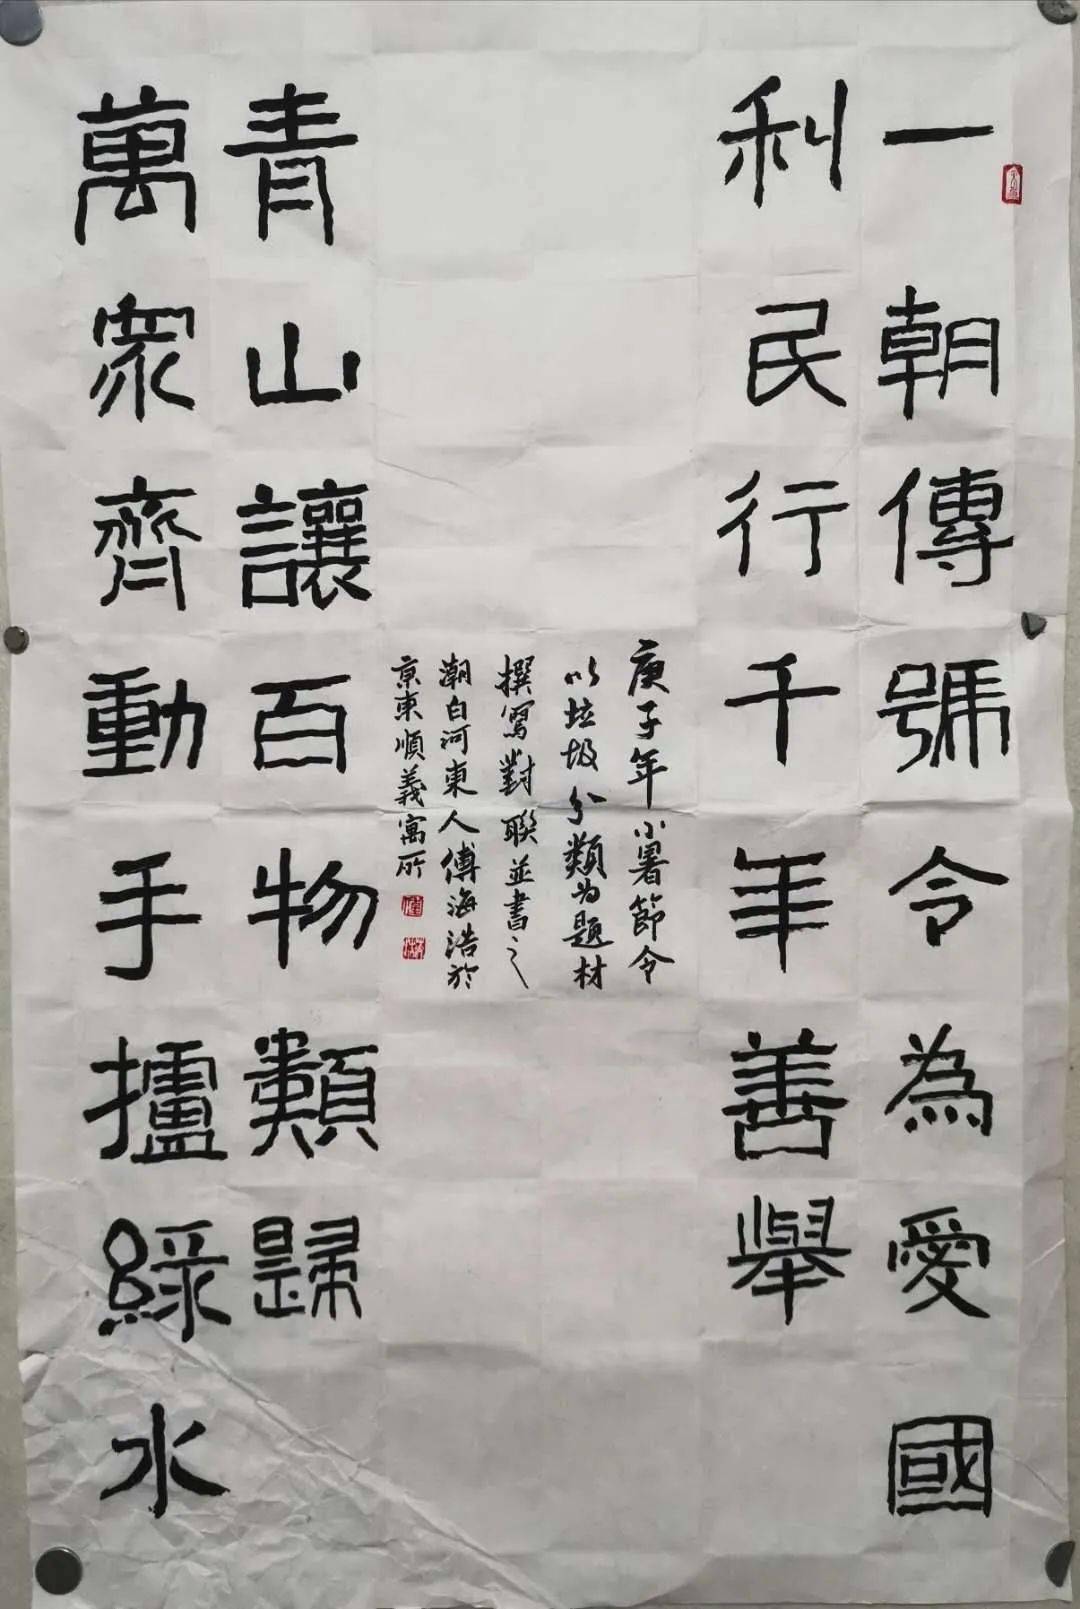 一朝傳號令為愛國
利民行千年善舉
萬衆齊動手攎綠水
青山讓百物類歸
庚子年小暑節令
以垃圾分類为題材
撰寫對聯並書之
潮白河東人傅海浩於
京東順義寓所